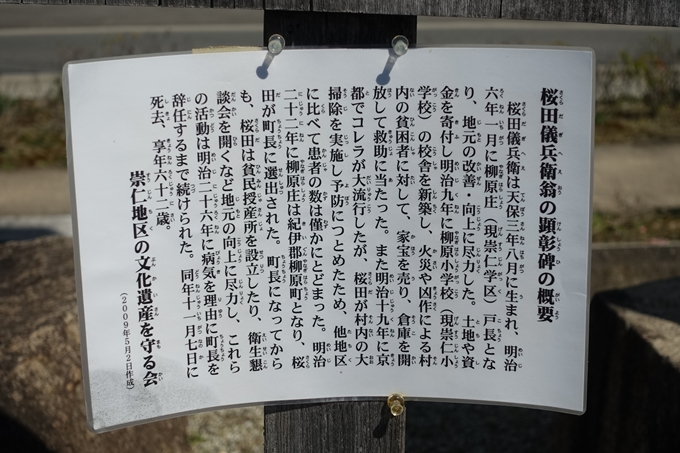 桜田儀兵衛翁の顕彰碑の概要
桜田儀兵衛は天保三年八月に生まれ、明治
六年一月に柳原庄（現崇仁学区）戸長とな
り、地元の改善・向上に尽力した。土地や資
金を寄付し明治九年に柳原小学校（現崇仁小
学校）の校舎を新築し、火災や凶作による村
内の貧困者に対して、家宝を売り、倉庫を開
放して救助に当たった。また明治十九年に京
都でコレラが大流行したが、桜田が村内の大
掃除を実施し予防につとめたため、他地区
に比べて患者の数は僅かにとどまった。明治
二十二年に柳原庄は紀伊郡柳原町となり、桜
田が町長に選出された。町長になってから
も、桜田は貧民授産所を設立したり、衛生懇
談会を開くなど地元の向上に尽力し、これら
の活動は明治二十六年に病気を理由に町長を
辞任するまで続けられた。同年十一月七日に
死去、享年六十二歳。
崇仁地区の文化遺産を守る会
（2009年5月2日作成）